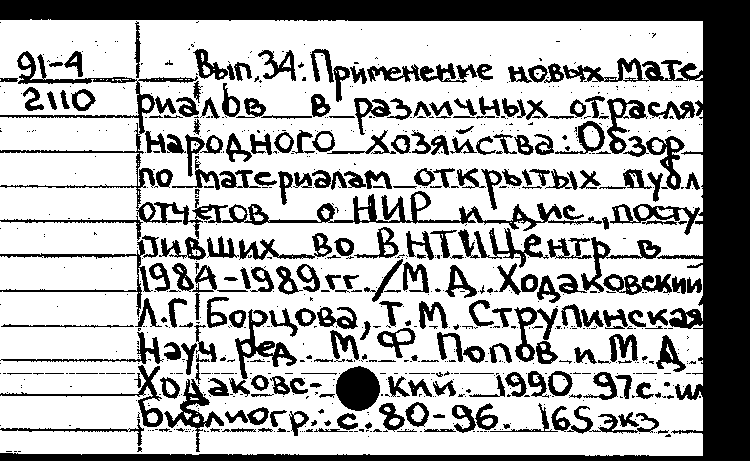 91-4
2110
Вып. 34: Применение новых мате-
риалов в различных отраслях
народного хозяйства: Обзор
по материалам открытых публ.
отчетов о НИР и дис., посту-
пивших во ВНТИЦентр в
1984-1989 гг. / М.Д. Ходаковский,
Л.Г. Борцова, Т.М. Струпинская
Науч. ред. М.Ф. Попов и М.Д.
Ходаковс- кий. 1990 97с.: ил
Библиогр.: с. 80-96. 165 экз